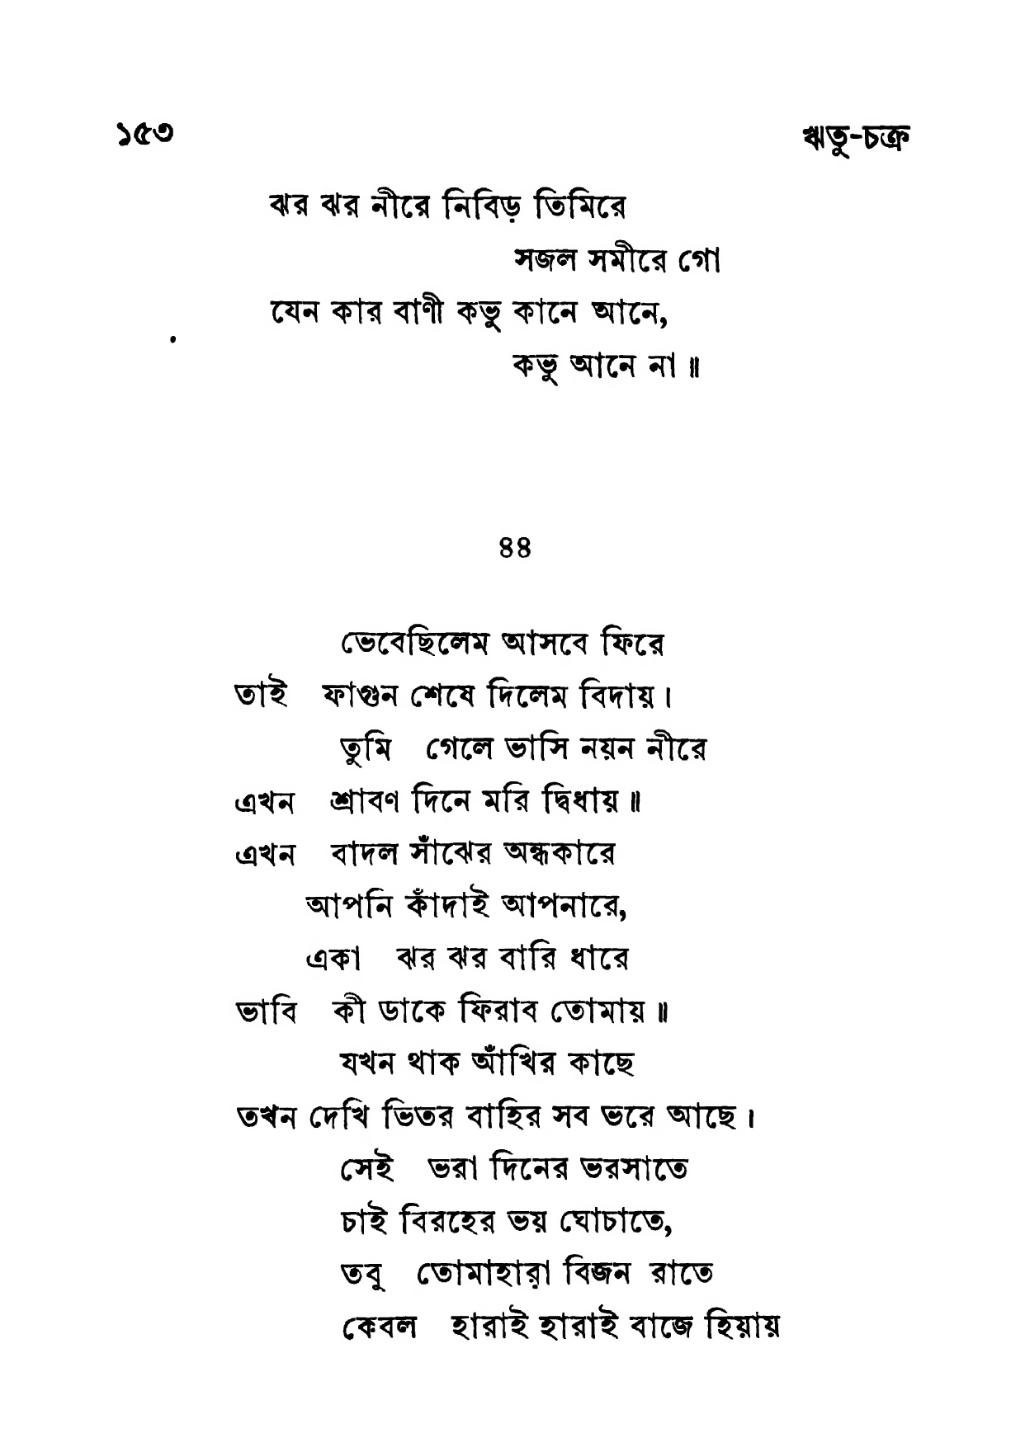 ১৫৩ ঋতু-চক্র
ঝর ঝর নীরে নিবিড় তিমিরে
সজল সমীরে গো
যেন কার বাণী কভু কানে আনে,
কভু আনে না॥
৪৪
ভেবেছিলেম আসবে ফিরে
তাই ফাগুন শেষে দিলেম বিদায়।
তুমি গেলে ভাসি নয়ন নীরে
এখন শ্রাবণ দিনে মরি দ্বিধায়॥
এখন বাদল সাঁঝের অন্ধকারে
আপনি কাঁদাই আপনারে,
একা ঝর ঝর বারি ধারে
ভাবি কী ডাকে ফিরাব তোমায়॥
যখন থাক আঁখির কাছে
তখন দেখি ভিতর বাহির সব ভরে আছে।
সেই ভরা দিনের ভরসাতে
চাই বিরহের ভয় ঘোচাতে,
তবু তোমাহারা বিজন রাতে
কেবল হারাই হারাই বাজে হিয়ায়